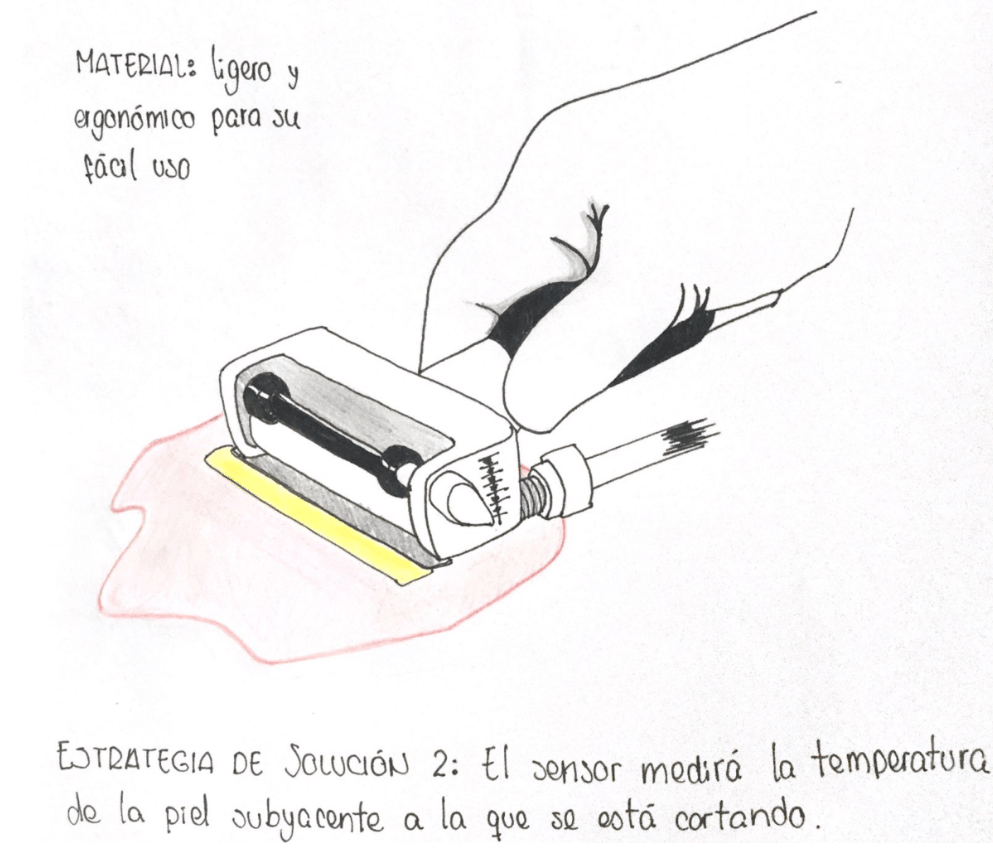 MATERIAL: ligero y
ergonómico para su
fácil uso
ESTRATEGIA DE SOLUCIÓN 2: El sensor medirá la temperatura
de la piel subyacente a la que se está cortando.